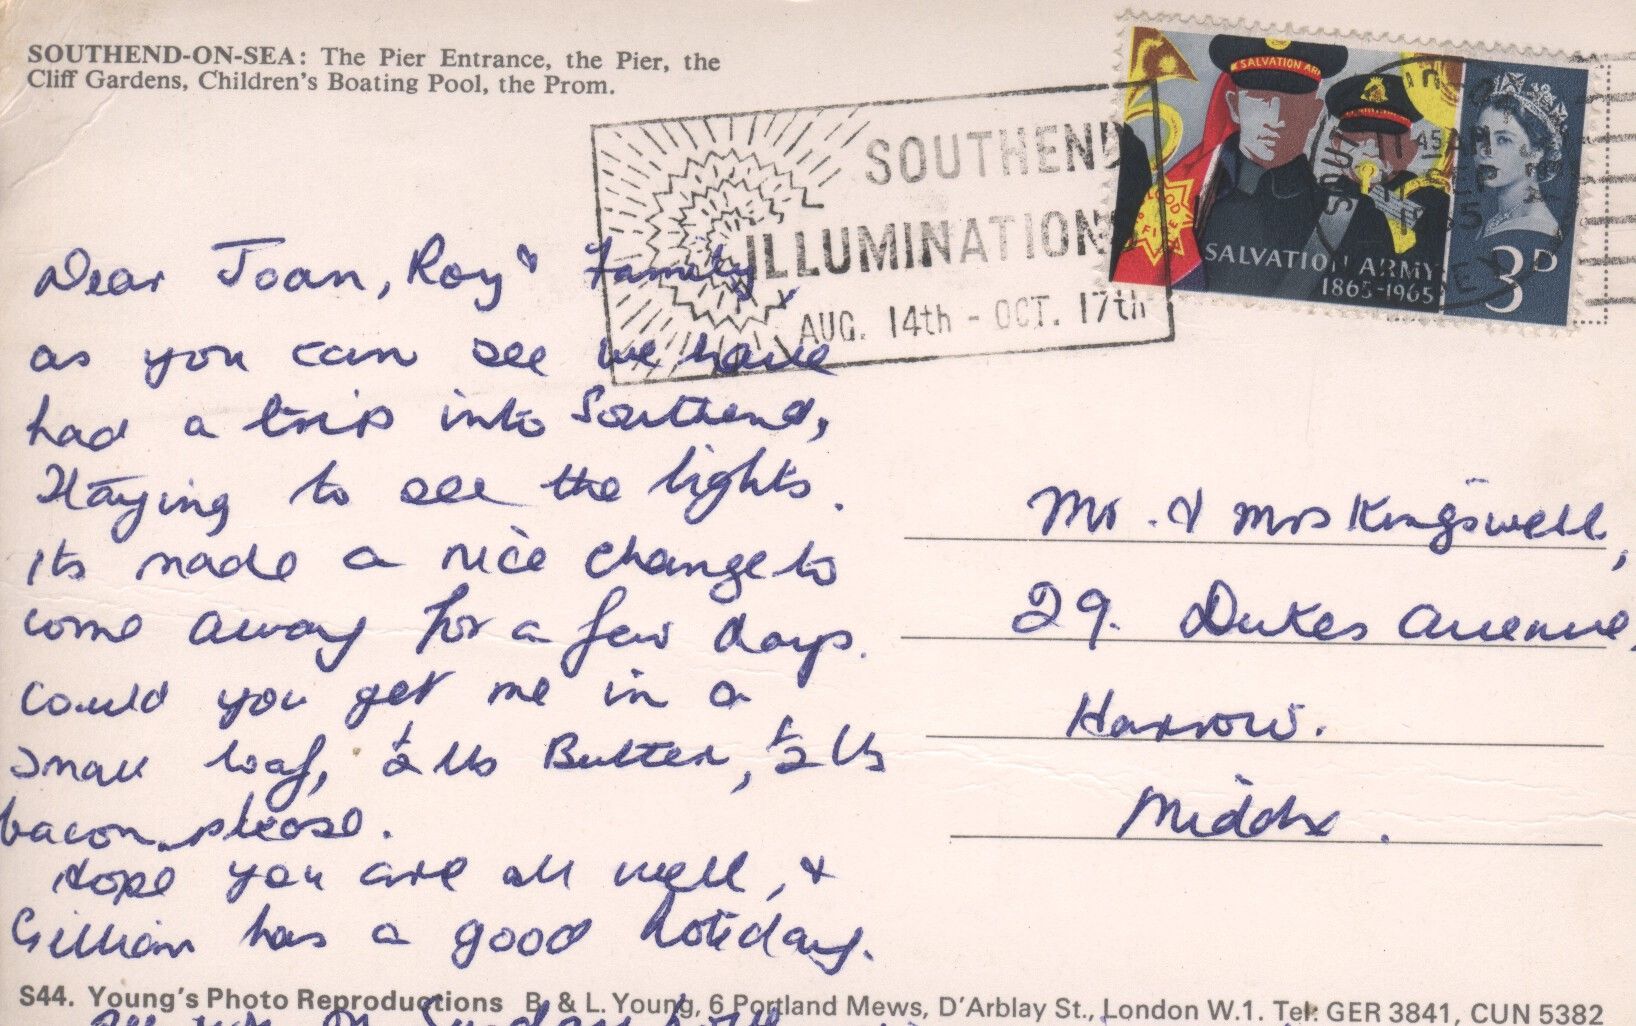 SOUTHEND-ON-SEA: The Pier Entrance, the Pier, the
Cliff Gardens, Children's Boating Pool, the Prom.
SOUTHEND
ILLUMINATIONS
AUG. 14th - OCT. 17th
SALVATION ARMY
SALVATION ARMY
1865-1965
3D
Dear Joan, Roy & Family,
as you can see we have
had a trip into Southend,
Staying to see the lights.
Its made a nice change to
come away for a few days.
Could you get me in a
small loaf, ½ lb Butter, ½ lb
bacon please.
Hope you are all well, &
Gillian has a good holiday.
Mr. & Mrs Kingswell,
29. Dukes Avenue,
Harrow.
Middx.
S44. Young's Photo Reproductions B. & L. Young, 6 Portland Mews, D'Arblay St., London W.1. Tel: GER 3841, CUN 5382
on Sunday